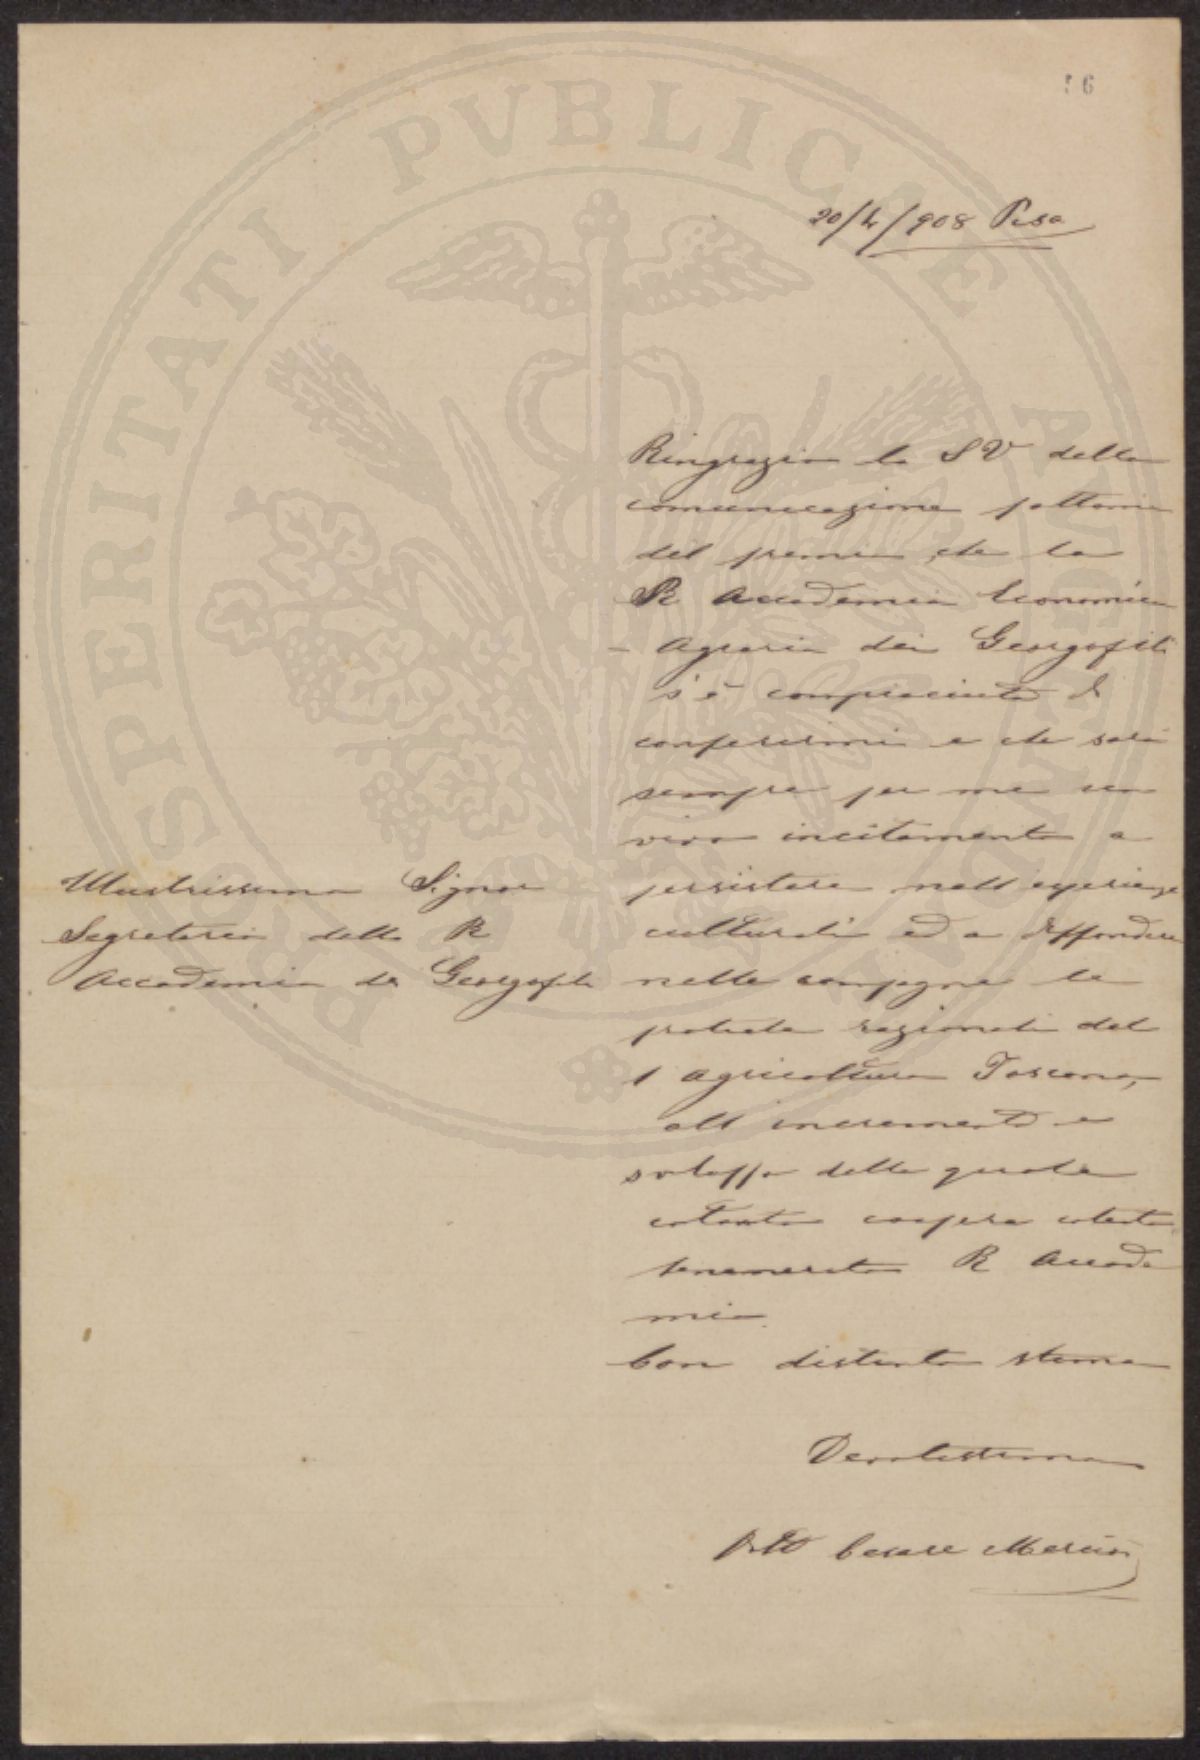 96
20/4/908 Pisa
Ringrazio la SV della
comunicazione fattami
del premio che la
R Accademia Economica
- Agraria dei Georgofili
s'è compiaciuta di
conferirmi e che sarà
sempre per me un
vivo incitamento a
persistere nell esperienze
culturali ed a diffondere
nelle campagne le
pratiche razionali del
l agricoltura Toscana,
all incremento e
sviluppo della quale
cotanto coopera cotesta
benemerita R Accade
mia.
Con distinta stima
Devotissimo
Dott Cesare
Illustrissimo Signor
Segretario della R
Accademia dei Georgofili
PROSPERITATI PVBLICAE AVGENDAE